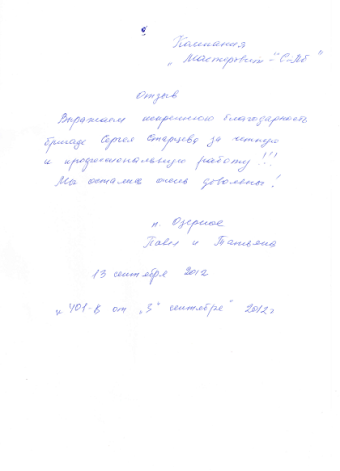 Компания
„Мастеровит - С-Пб"
Отзыв
Выражаем искреннюю благодарность
бригаде Сергея Старцева за четкую
и профессиональную работу !!!
Мы остались очень довольны!
п. Озерное
Павел и Татьяна
13 сентября 2012
401-В от „3" сентября 2012г